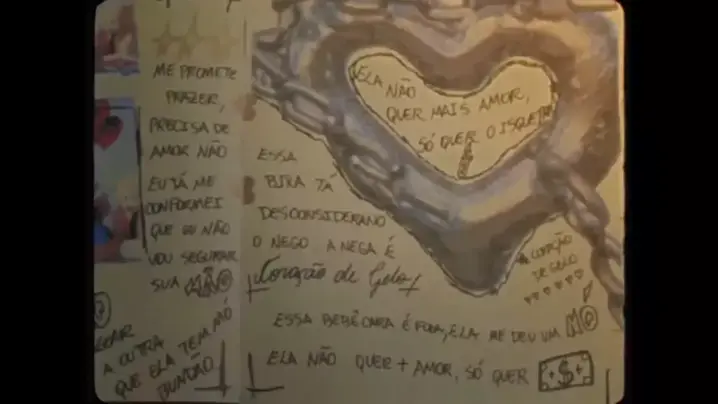 ME PROMETE
PRAZER,
PRECISA DE
AMOR NÃO
EU TÁ ME
CONFORMEI
QUE EU NÃO
VOU SEGURAR
SUA MÃO
A OUTRA
QUE ELA TEM MÓ
BUNDÃO
ELA NÃO
QUER MAIS AMOR,
SÓ QUER O ISQUEIRO
ESSA
TÁ
DESCONSIDERANO
O NEGO A NEGA É
Coração de Gelo
CORAÇÃO
DE GELO
ESSA BEBÊ CARA É FODA, ELA ME DEU UM NÓ
ELA NÃO QUER + AMOR, SÓ QUER +$+